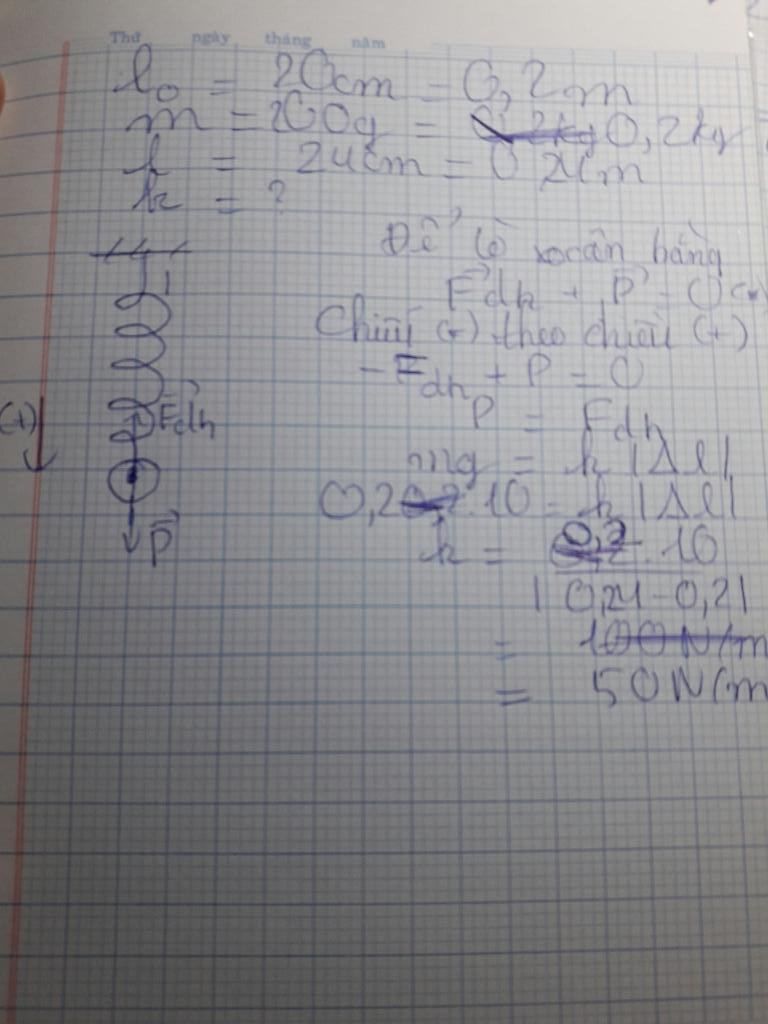 Thứ ngày tháng năm
l₀ = 20cm = 0,2m
m = 200g = 0,2kg
l = 24cm = 0,24m
k = ?
Để lò xo cân bằng
F⃗đh + P⃗ = 0 (*)
Chiếu (*) theo chiều (+)
-Fđh + P = 0
P = Fđh
(+) F⃗đh
mg = k |Δl|
0,2 . 10 = k |Δl|
P⃗
k = 0,2 . 10
|0,24 - 0,2|
= 100N/m
= 50N/m